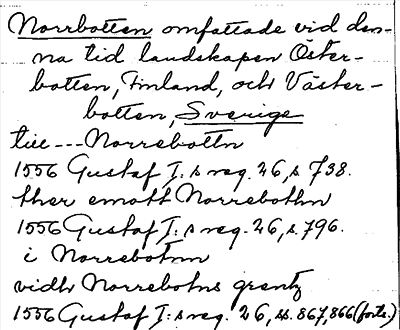 Norrbotten omfattade vid den-
na tid landskapen Öster-
botten, Finland, och Väster-
botten, Sverige
till --- Norrebottn
1556 Gustaf I:s reg. 26, s. 738.
ther emott Norrebothn
1556 Gustaf I:s reg. 26, s. 796.
i Norrebotnn
vidh Norrebotns grentz
1556 Gustaf I:s reg. 26, ss. 867,866 (forts.)